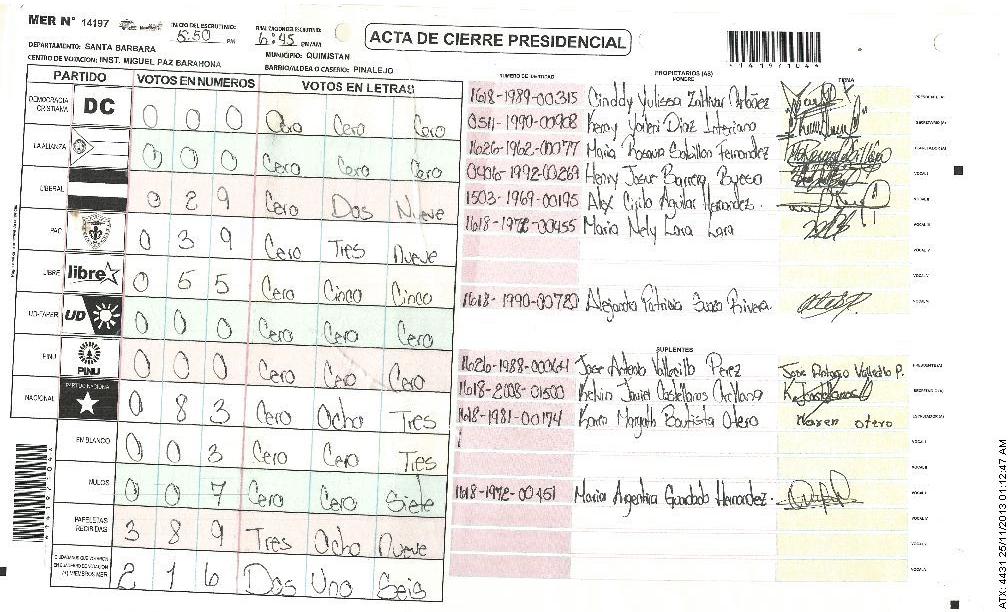 MER N° 14197
INICIO DEL ESCRUTINIO:
5:50 PM
6:45 PM/AM
ACTA DE CIERRE PRESIDENCIAL
DEPARTAMENTO: SANTA BARBARA
MUNICIPIO: QUIMISTAN
CENTRO DE VOTACION: INST. MIGUEL PAZ BARAHONA
BARRIO/ALDEA O CASERIO: PINALEJO
PARTIDO VOTOS EN NUMEROS VOTOS EN LETRAS
DEMOCRACIA CRISTIANA DC 0 0 0 Cero Cero Cero
LA ALIANZA 0 0 0 Cero Cero Cero
LIBERAL 0 2 9 Cero Dos Nueve
PAC 0 3 9 Cero Tres Nueve
LIBRE libre 0 5 5 Cero Cinco Cinco
UD-FAPER UD 0 0 0 Cero Cero Cero
PINU PINU 0 0 0 Cero Cero Cero
NACIONAL PARTIDO NACIONAL 0 8 3 Cero Ocho Tres
EN BLANCO 0 0 3 Cero Cero Tres
NULOS 0 0 7 Cero Cero Siete
PAPELETAS RECIBIDAS 3 8 9 Tres Ocho Nueve
2 1 6 Dos Uno Seis
NUMERO DE IDENTIDAD PROPIETARIOS (AS) NOMBRE FIRMA
1618-1989-00315
0511-1990-00908
1626-1962-00077 Maria
0406-1992-00269 Henry Josue Barrera
1503-1969-00195 Alex Cirilo Aguilar Hernandez.
1618-1972-00455 Maria Nely Lara Lara
1618-1990-00720 Alejandra Patricia Rivera
SUPLENTES
1626-1988-00061 Jose Antonio Vallecillo Perez Jose Antonio Vallecillo P.
1618-2008-01500 Kelvin Javier Castellanos Arellano
1618-1981-00174 Karen Margoth Bautista Otero Karen otero
1618-1972-00451 Maria Argentina Hernandez.
ATX: 4431 25/11/2013 01:12:47 AM